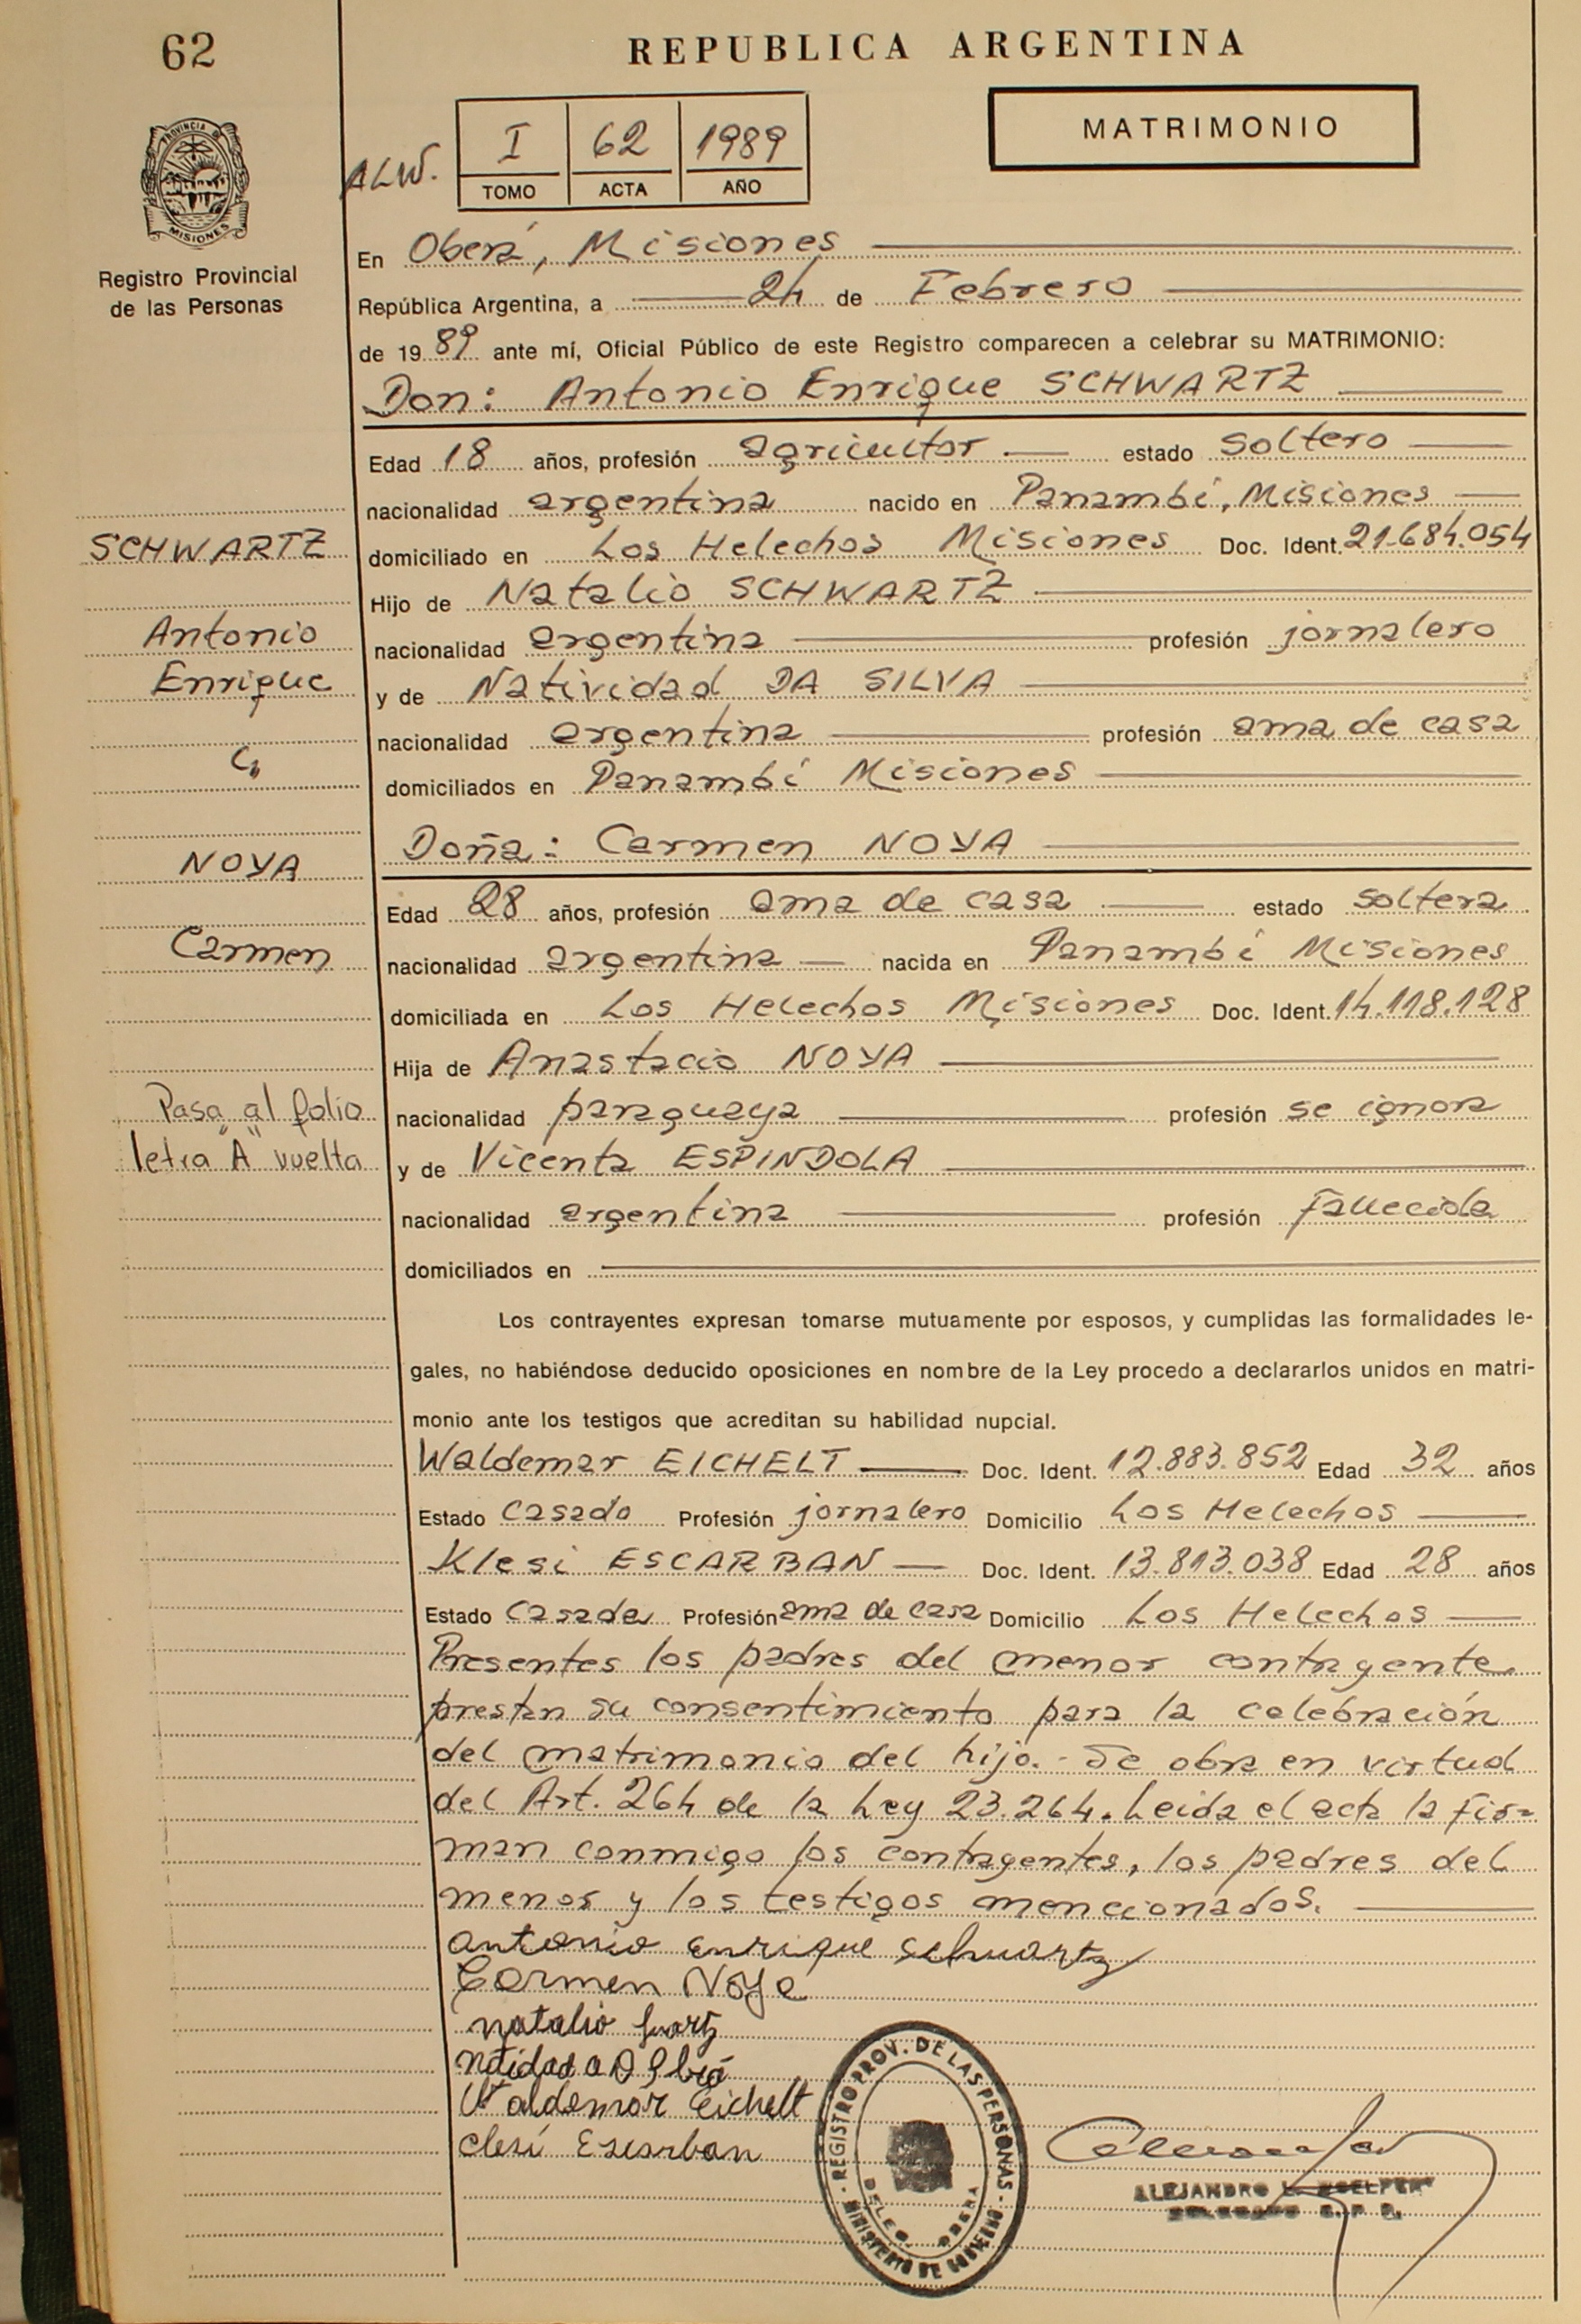 62
REPUBLICA ARGENTINA
MATRIMONIO
ALW.
I 62 1989
TOMO ACTA AÑO
PROVINCIA DE
MISIONES
Registro Provincial
de las Personas
En Oberá, Misiones
República Argentina, a 24 de Febrero
de 1989 ante mí, Oficial Público de este Registro comparecen a celebrar su MATRIMONIO:
Don: Antonio Enrique SCHWARTZ
Edad 18 años, profesión agricultor estado soltero
nacionalidad argentina nacido en Panambí, Misiones
SCHWARTZ
domiciliado en Los Helechos Misiones Doc. Ident. 21.684.054
Hijo de Natalio SCHWARTZ
Antonio
nacionalidad argentina profesión jornalero
Enrique
y de Natividad DA SILVA
nacionalidad argentina profesión ama de casa
domiciliados en Panambí Misiones
Doña: Carmen NOYA
NOYA
Edad 28 años, profesión ama de casa estado soltera
Carmen
nacionalidad argentina nacida en Panambí Misiones
domiciliada en Los Helechos Misiones Doc. Ident. 14.118.128
Hija de Anastacio NOYA
Pasa al folio
nacionalidad paraguaya profesión se ignora
letra "A" vuelta
y de Vicenta ESPINDOLA
nacionalidad argentina profesión Fallecida
domiciliados en
Los contrayentes expresan tomarse mutuamente por esposos, y cumplidas las formalidades le-
gales, no habiéndose deducido oposiciones en nombre de la Ley procedo a declararlos unidos en matri-
monio ante los testigos que acreditan su habilidad nupcial.
Waldemar EICHELT Doc. Ident. 12.883.852 Edad 32 años
Estado casado Profesión jornalero Domicilio Los Helechos
Klesi ESCARBAN Doc. Ident. 13.813.038 Edad 28 años
Estado casada Profesión ama de casa Domicilio Los Helechos
Presentes los padres del menor contrayente
prestan su consentimiento para la celebración
del matrimonio del hijo.- Se obra en virtud
del Art. 264 de la Ley 23.264. Leida el acta la fir=
man conmigo los contrayentes, los padres del
menor y los testigos mencionados.
antonio enrique schwartz
Carmen Noya
natalio
Waldemar Eichelt
clesí Escarban
REGISTRO PROV. DE LAS PERSONAS
MINISTERIO DE GOBIERNO
DELEG. OBERA
ALEJANDRO